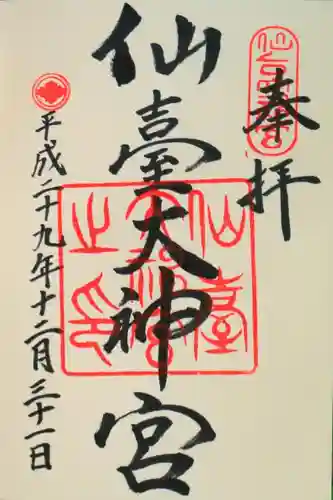 奉拝
仙臺大神宮
平成二十九年十二月三十一日
仙臺大神宮之印